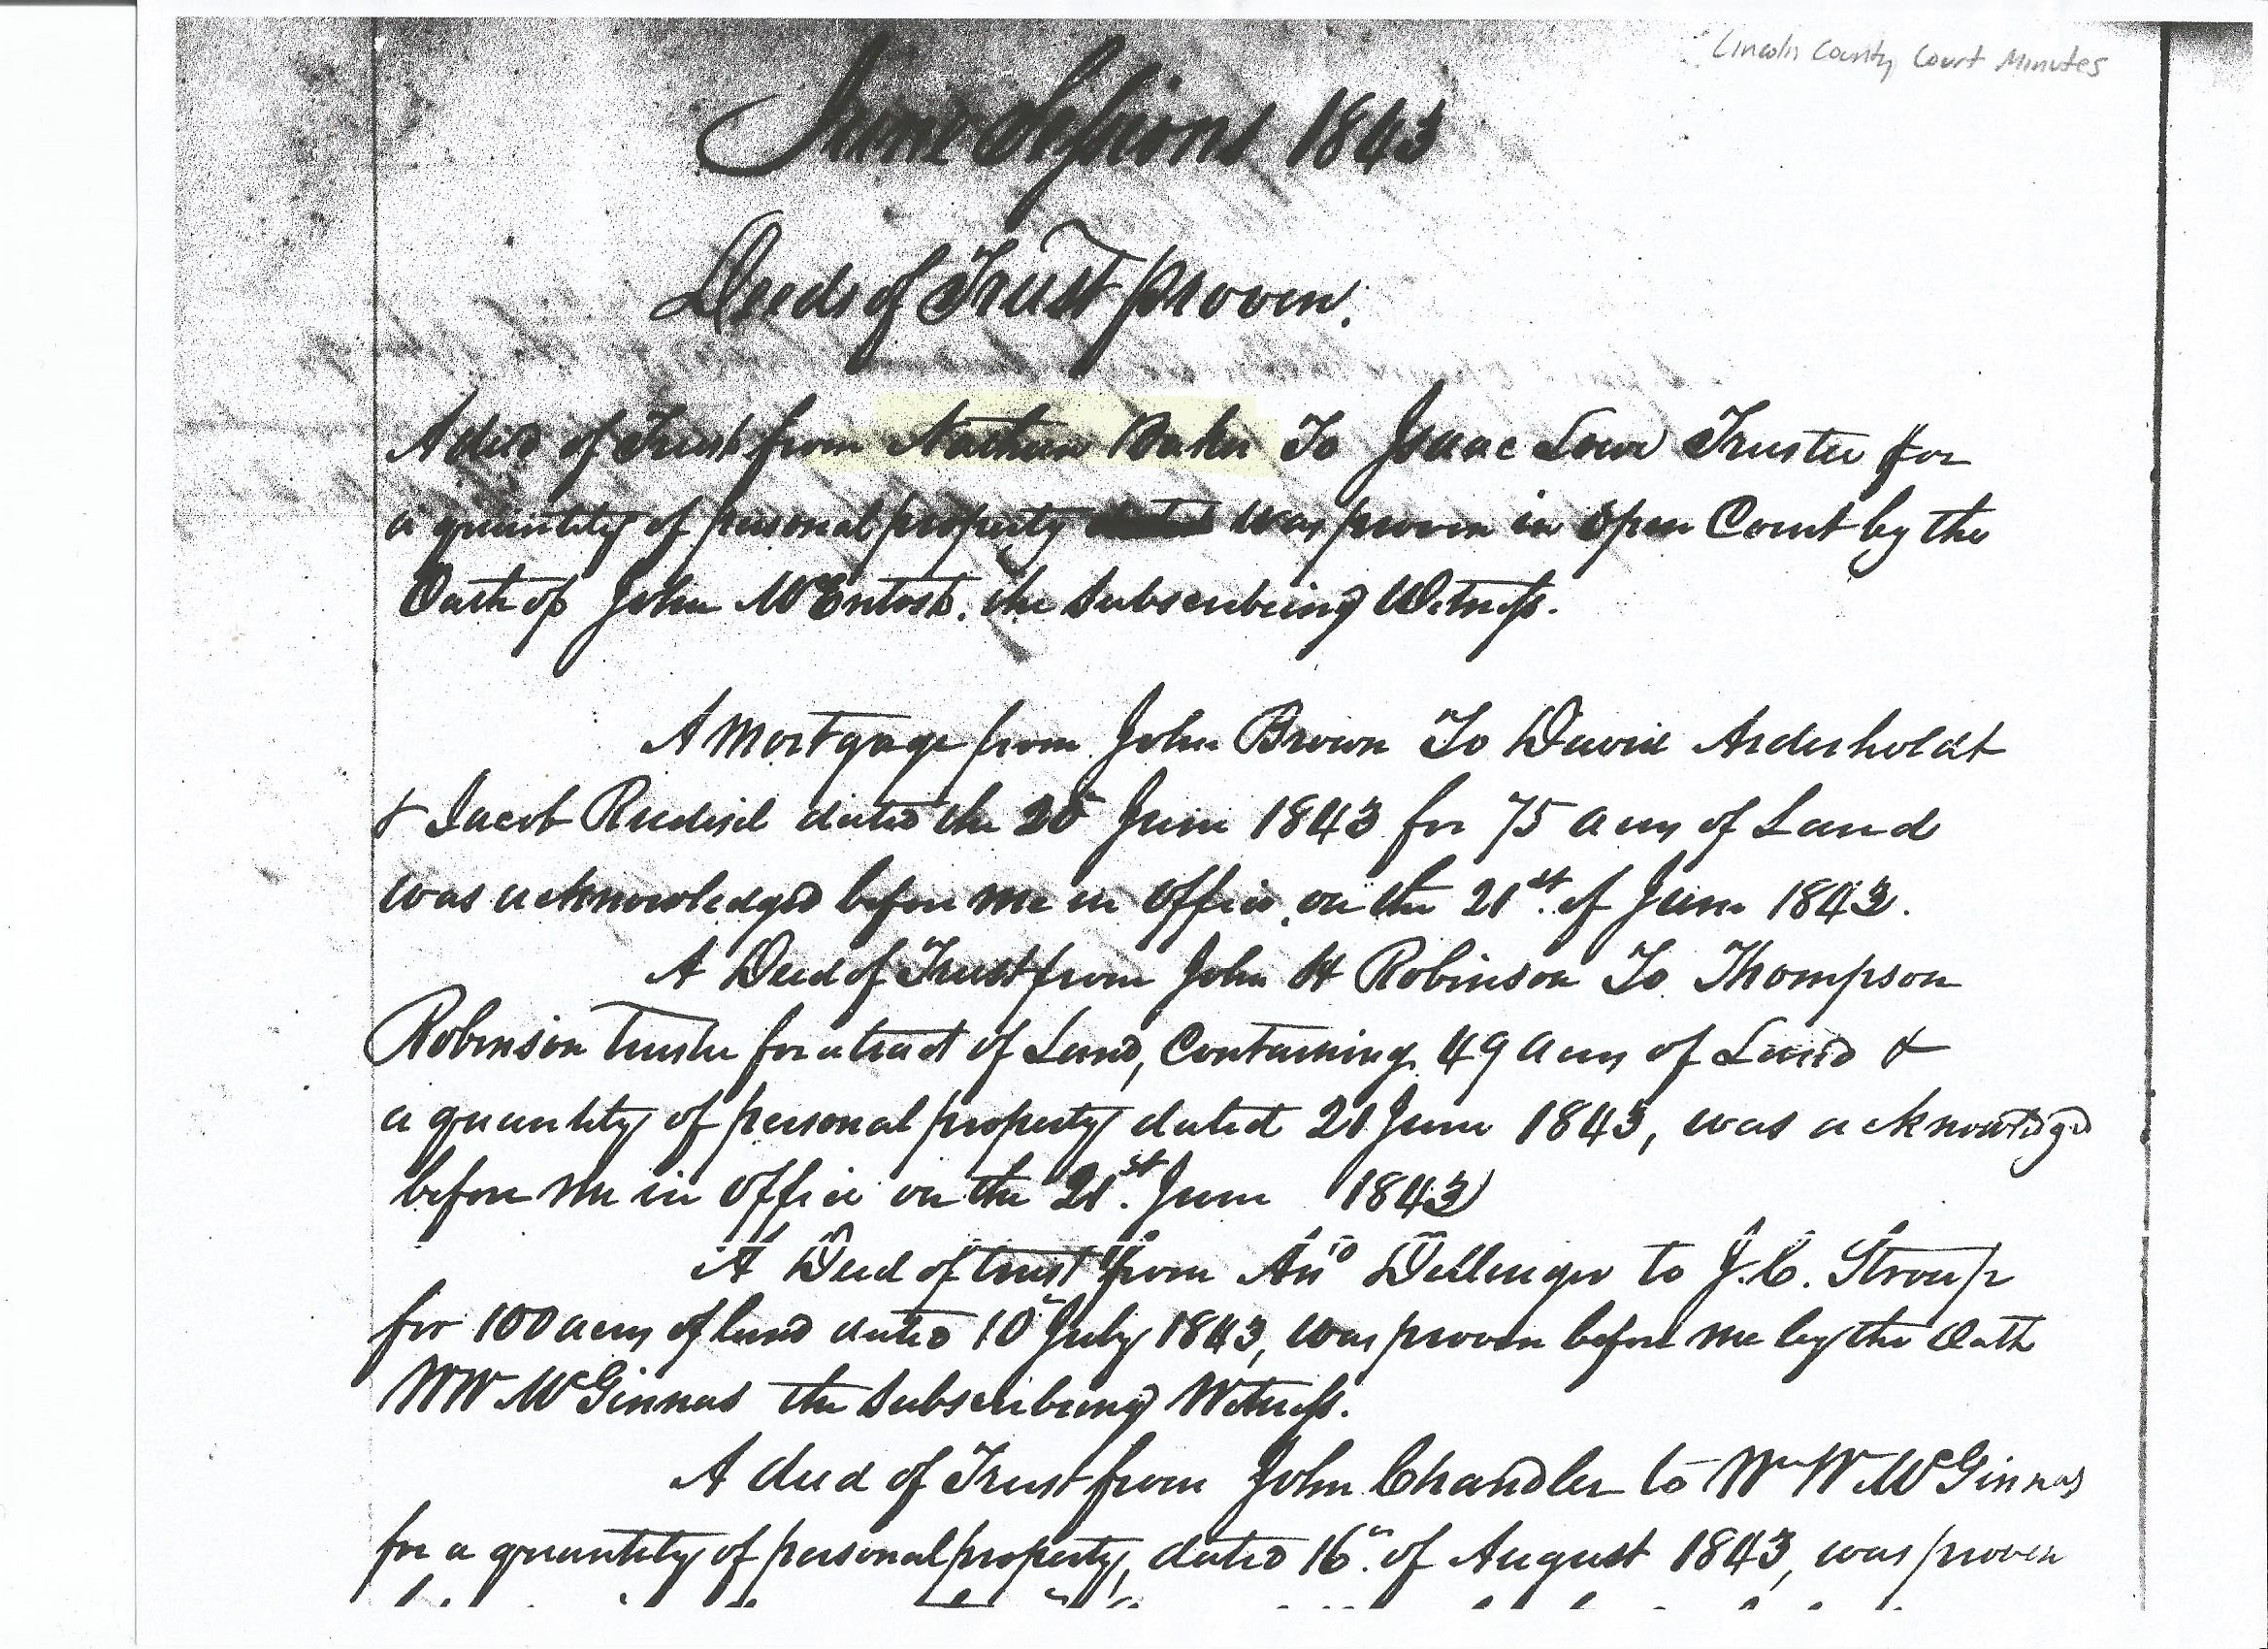 Lincoln County Court Minutes
June Sessions 1843
Deeds of Trust proven.
A deed of Trust from Nathan Baker To Isaac Lowe Trustee for
a quantity of personal property was proven in open Court by the
Oath of John McEntosh. the Subscribing Witness.
A Mortgage from John Brown To David Arderholdt
& Jacob Rudisil dated the 20 June 1843 for 75 acres of Land
was acknowledged before me in office on the 21st. of June 1843.
A Deed of Trust from John H Robinson To Thompson
Robinson Trustee for a tract of Land, Containing 49 acres of Land &
a quantity of personal property dated 21 June 1843, was acknowledged
before me in office on the 21st. June 1843
A Deed of trust from Dellinger to J. C. Stroup
for 100 acres of land dated 10th July 1843, was proven before me by the Oath
WW McGinnas the Subscribing Witness.
A deed of Trust from John Chandler to Wm W. McGinnas
for a quantity of personal property, dated 16th. of August 1843, was proven